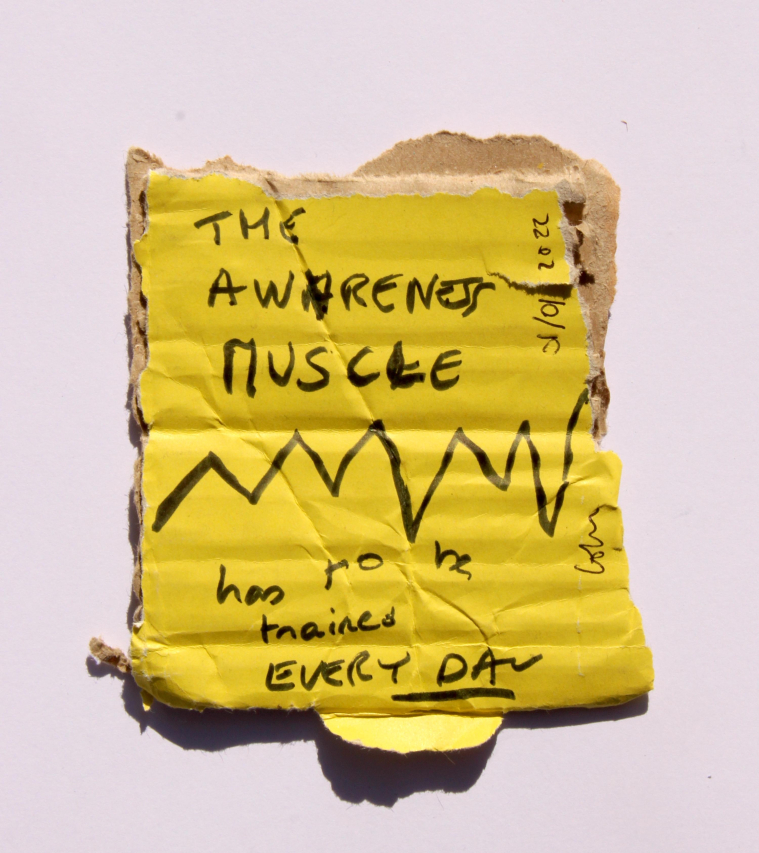 THE
AWARENESS
MUSCLE
has to be
trained
EVERY DAY